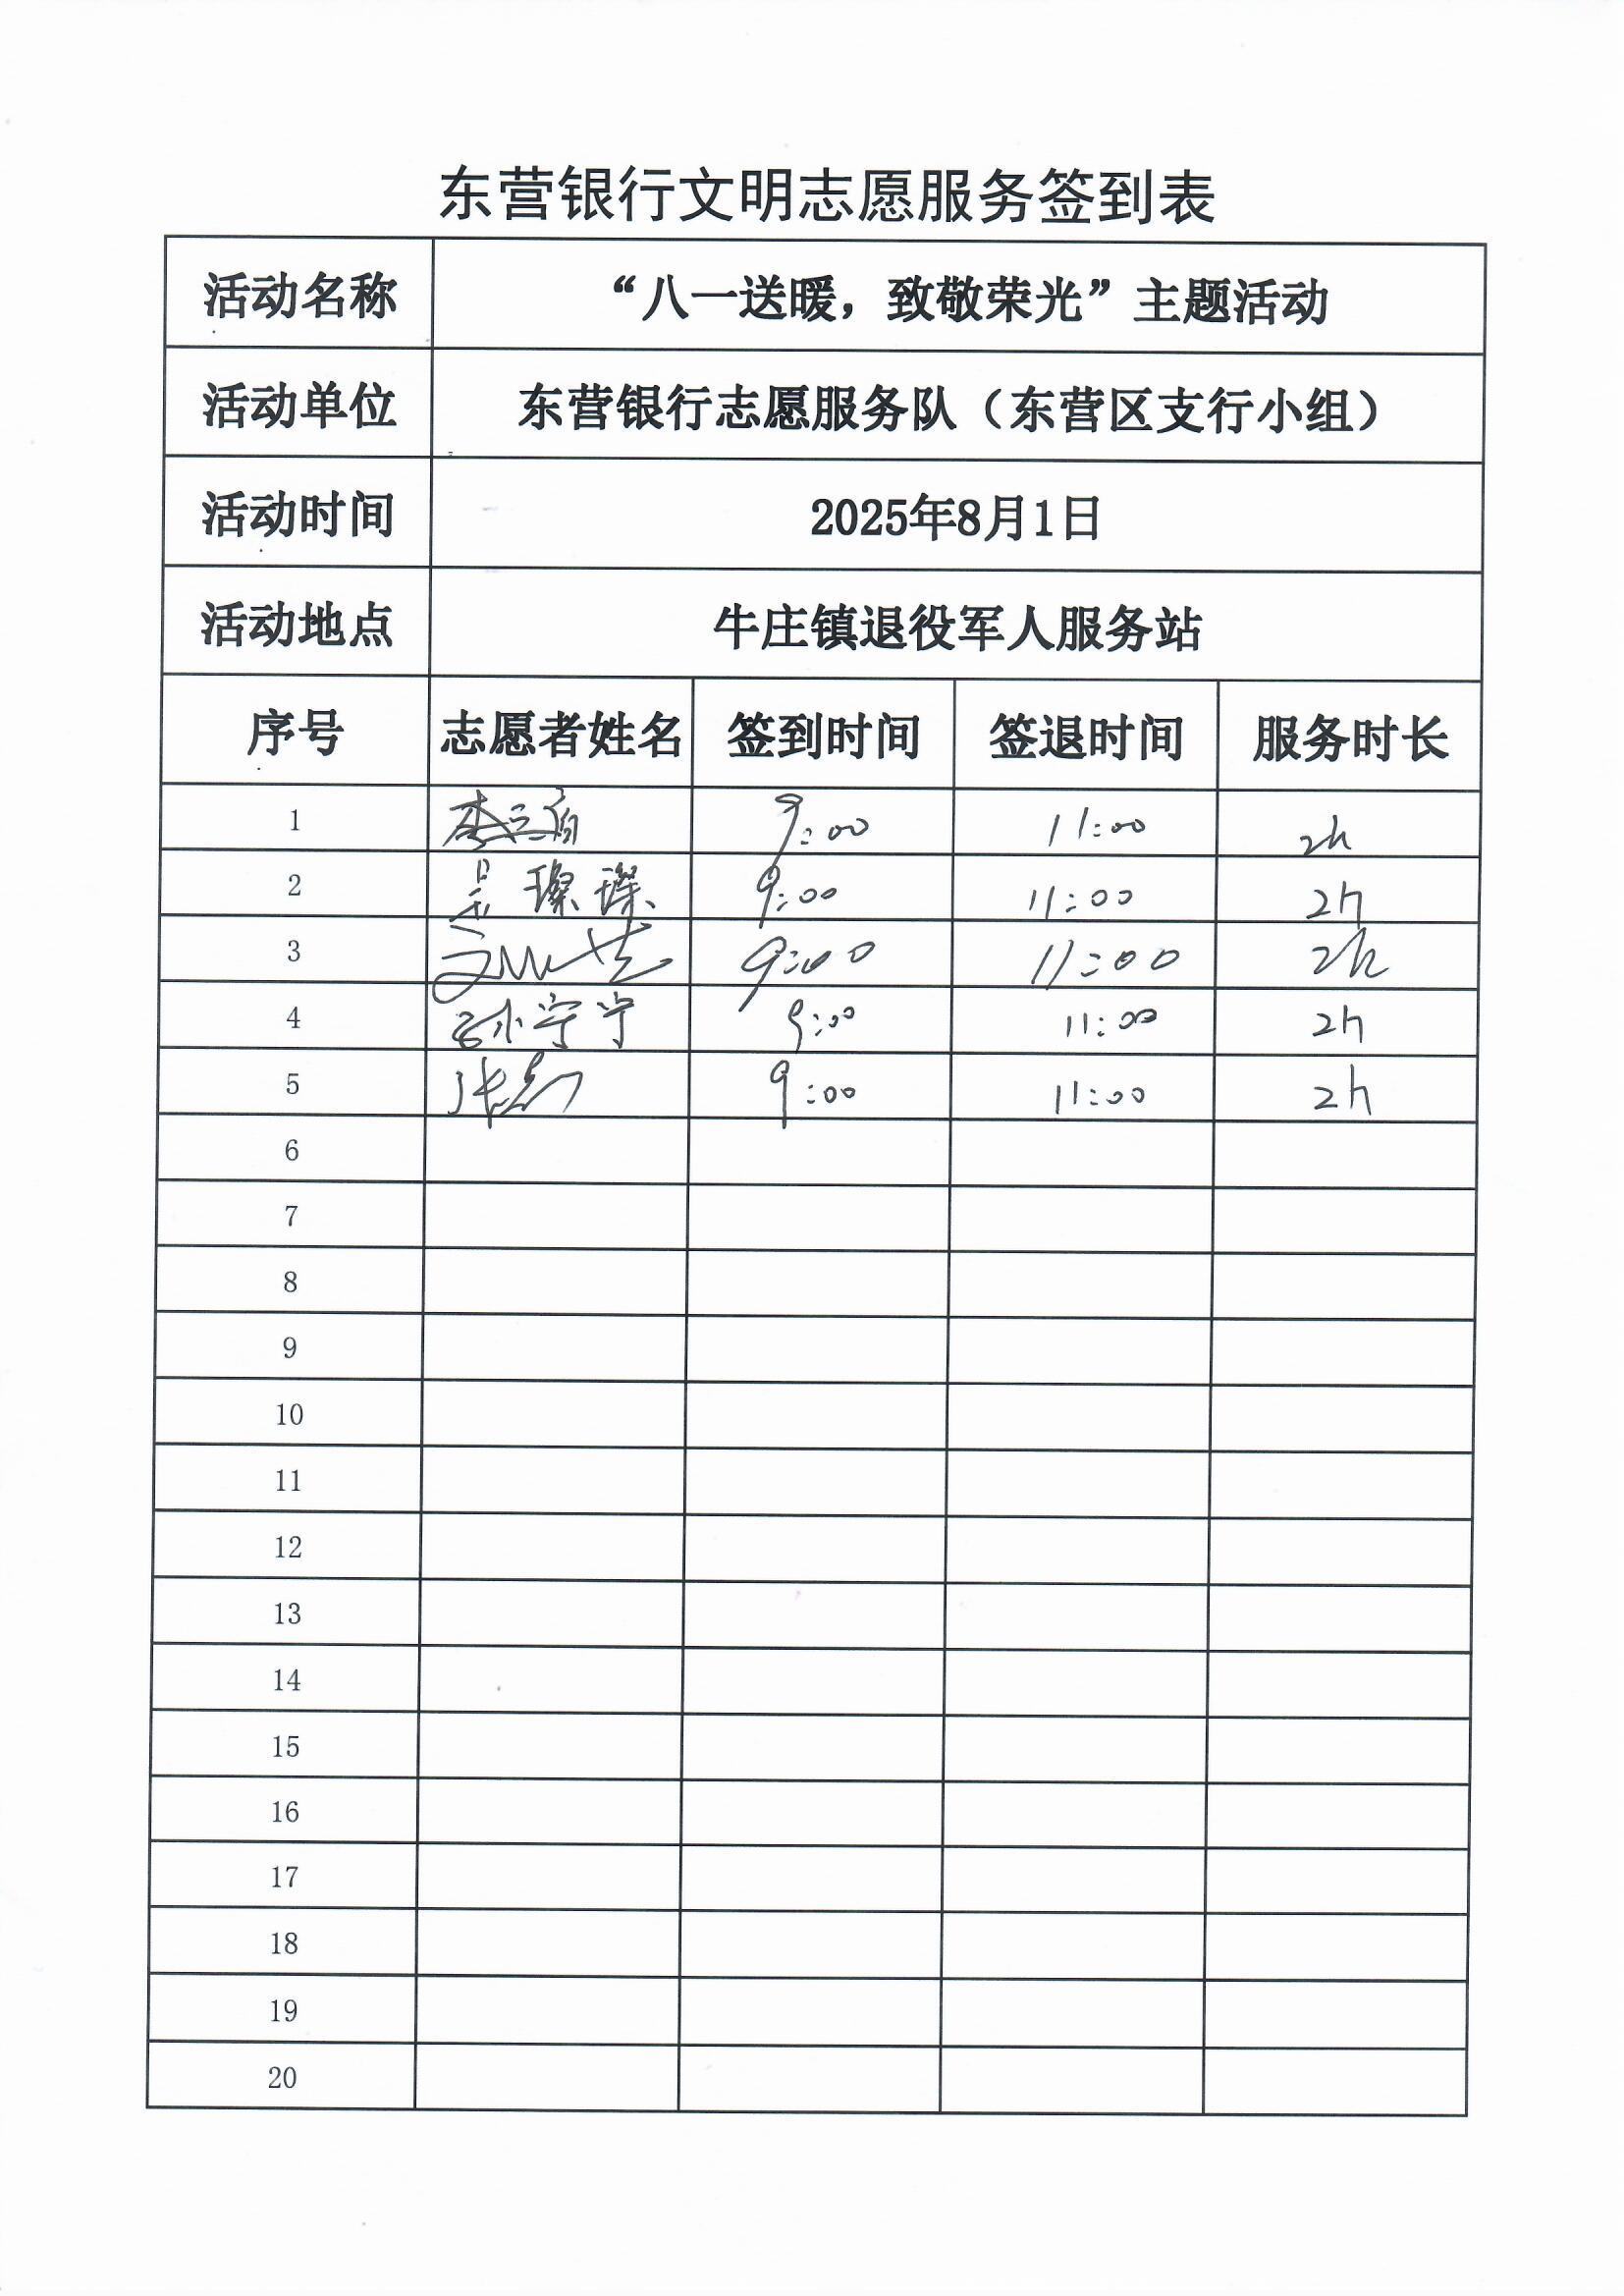 东营银行文明志愿服务签到表
活动名称 “八一送暖，致敬荣光”主题活动
活动单位 东营银行志愿服务队（东营区支行小组）
活动时间 2025年8月1日
活动地点 牛庄镇退役军人服务站
序号 志愿者姓名 签到时间 签退时间 服务时长
1 9:00 11:00 2h
2 吴璨璨 9:00 11:00 2h
3 9:00 11:00 2h
4 孙宁宁 9:00 11:00 2h
5 9:00 11:00 2h
6
7
8
9
10
11
12
13
14
15
16
17
18
19
20